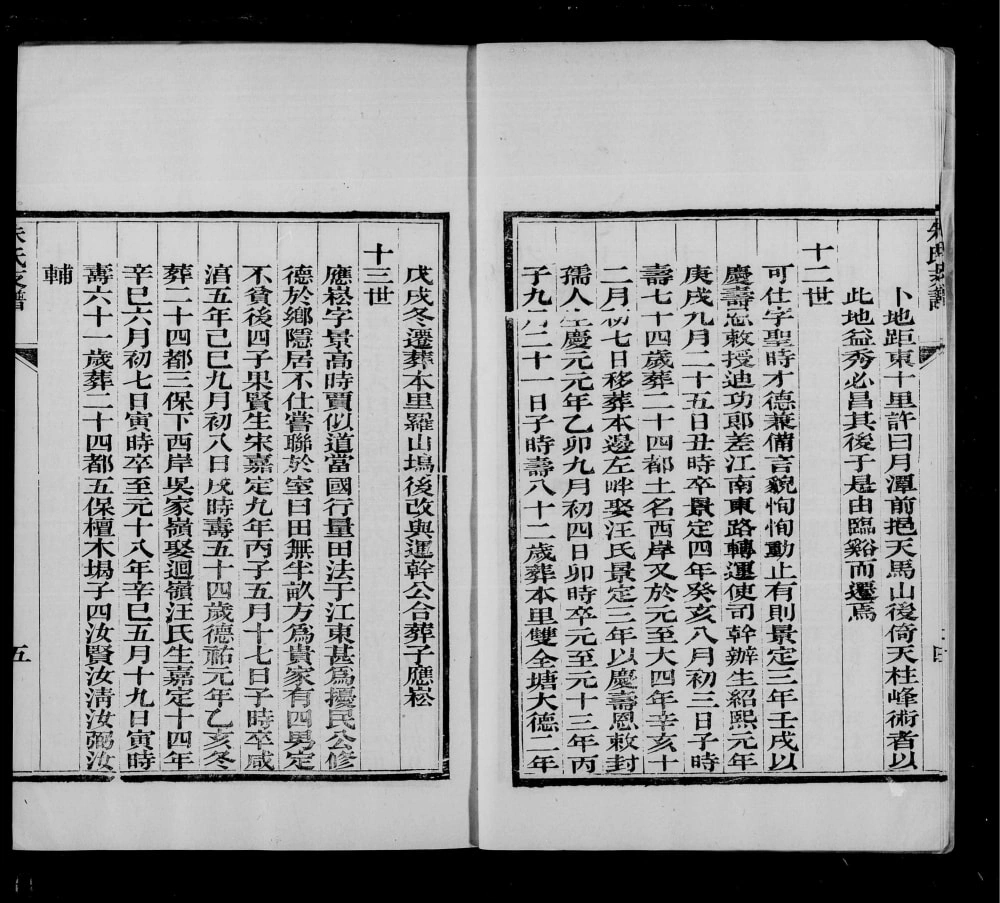 卜地距東十里許曰月潭前挹天馬山後倚天柱峰術者以
此地益秀必昌其後子是由臨谿而遷焉
十二世
可仕字聖時才德兼備言貌恂恂動止有則景定三年壬戌以
慶壽恩敕授迪功郎差江南東路轉運使司幹辦生紹熙元年
庚戌九月二十五日丑時卒景定四年癸亥八月初三日子時
壽七十四歲葬二十四都土名西岸又於元至大四年辛亥十
二月初七日移葬本邊左畔娶汪氏景定三年以慶壽恩敕封
孺人生慶元元年乙卯九月初四日卯時卒元至元十三年丙
子九月二十一日子時壽八十二歲葬本里雙全塘大德二年
戊戌冬遷葬本里羅山塢後改與進幹公合葬子應崧
十三世
應崧字景高時賈似道當國行量田法于江東甚為擾民公修
德於鄉隱居不仕嘗聯於室曰田無半畝方為貴家有四男定
不貧後四子果賢生宋嘉定九年丙子五月十七日子時卒咸
淳五年己巳九月初八日戌時壽五十四歲德祐元年乙亥冬
葬二十四都三保下西岸吳家嶺娶迴嶺汪氏生嘉定十四年
辛巳六月初七日寅時卒至元十八年辛巳五月十九日寅時
壽六十一歲葬二十四都五保檀木堨子四汝賢汝清汝弼汝
輔
朱氏支譜
五